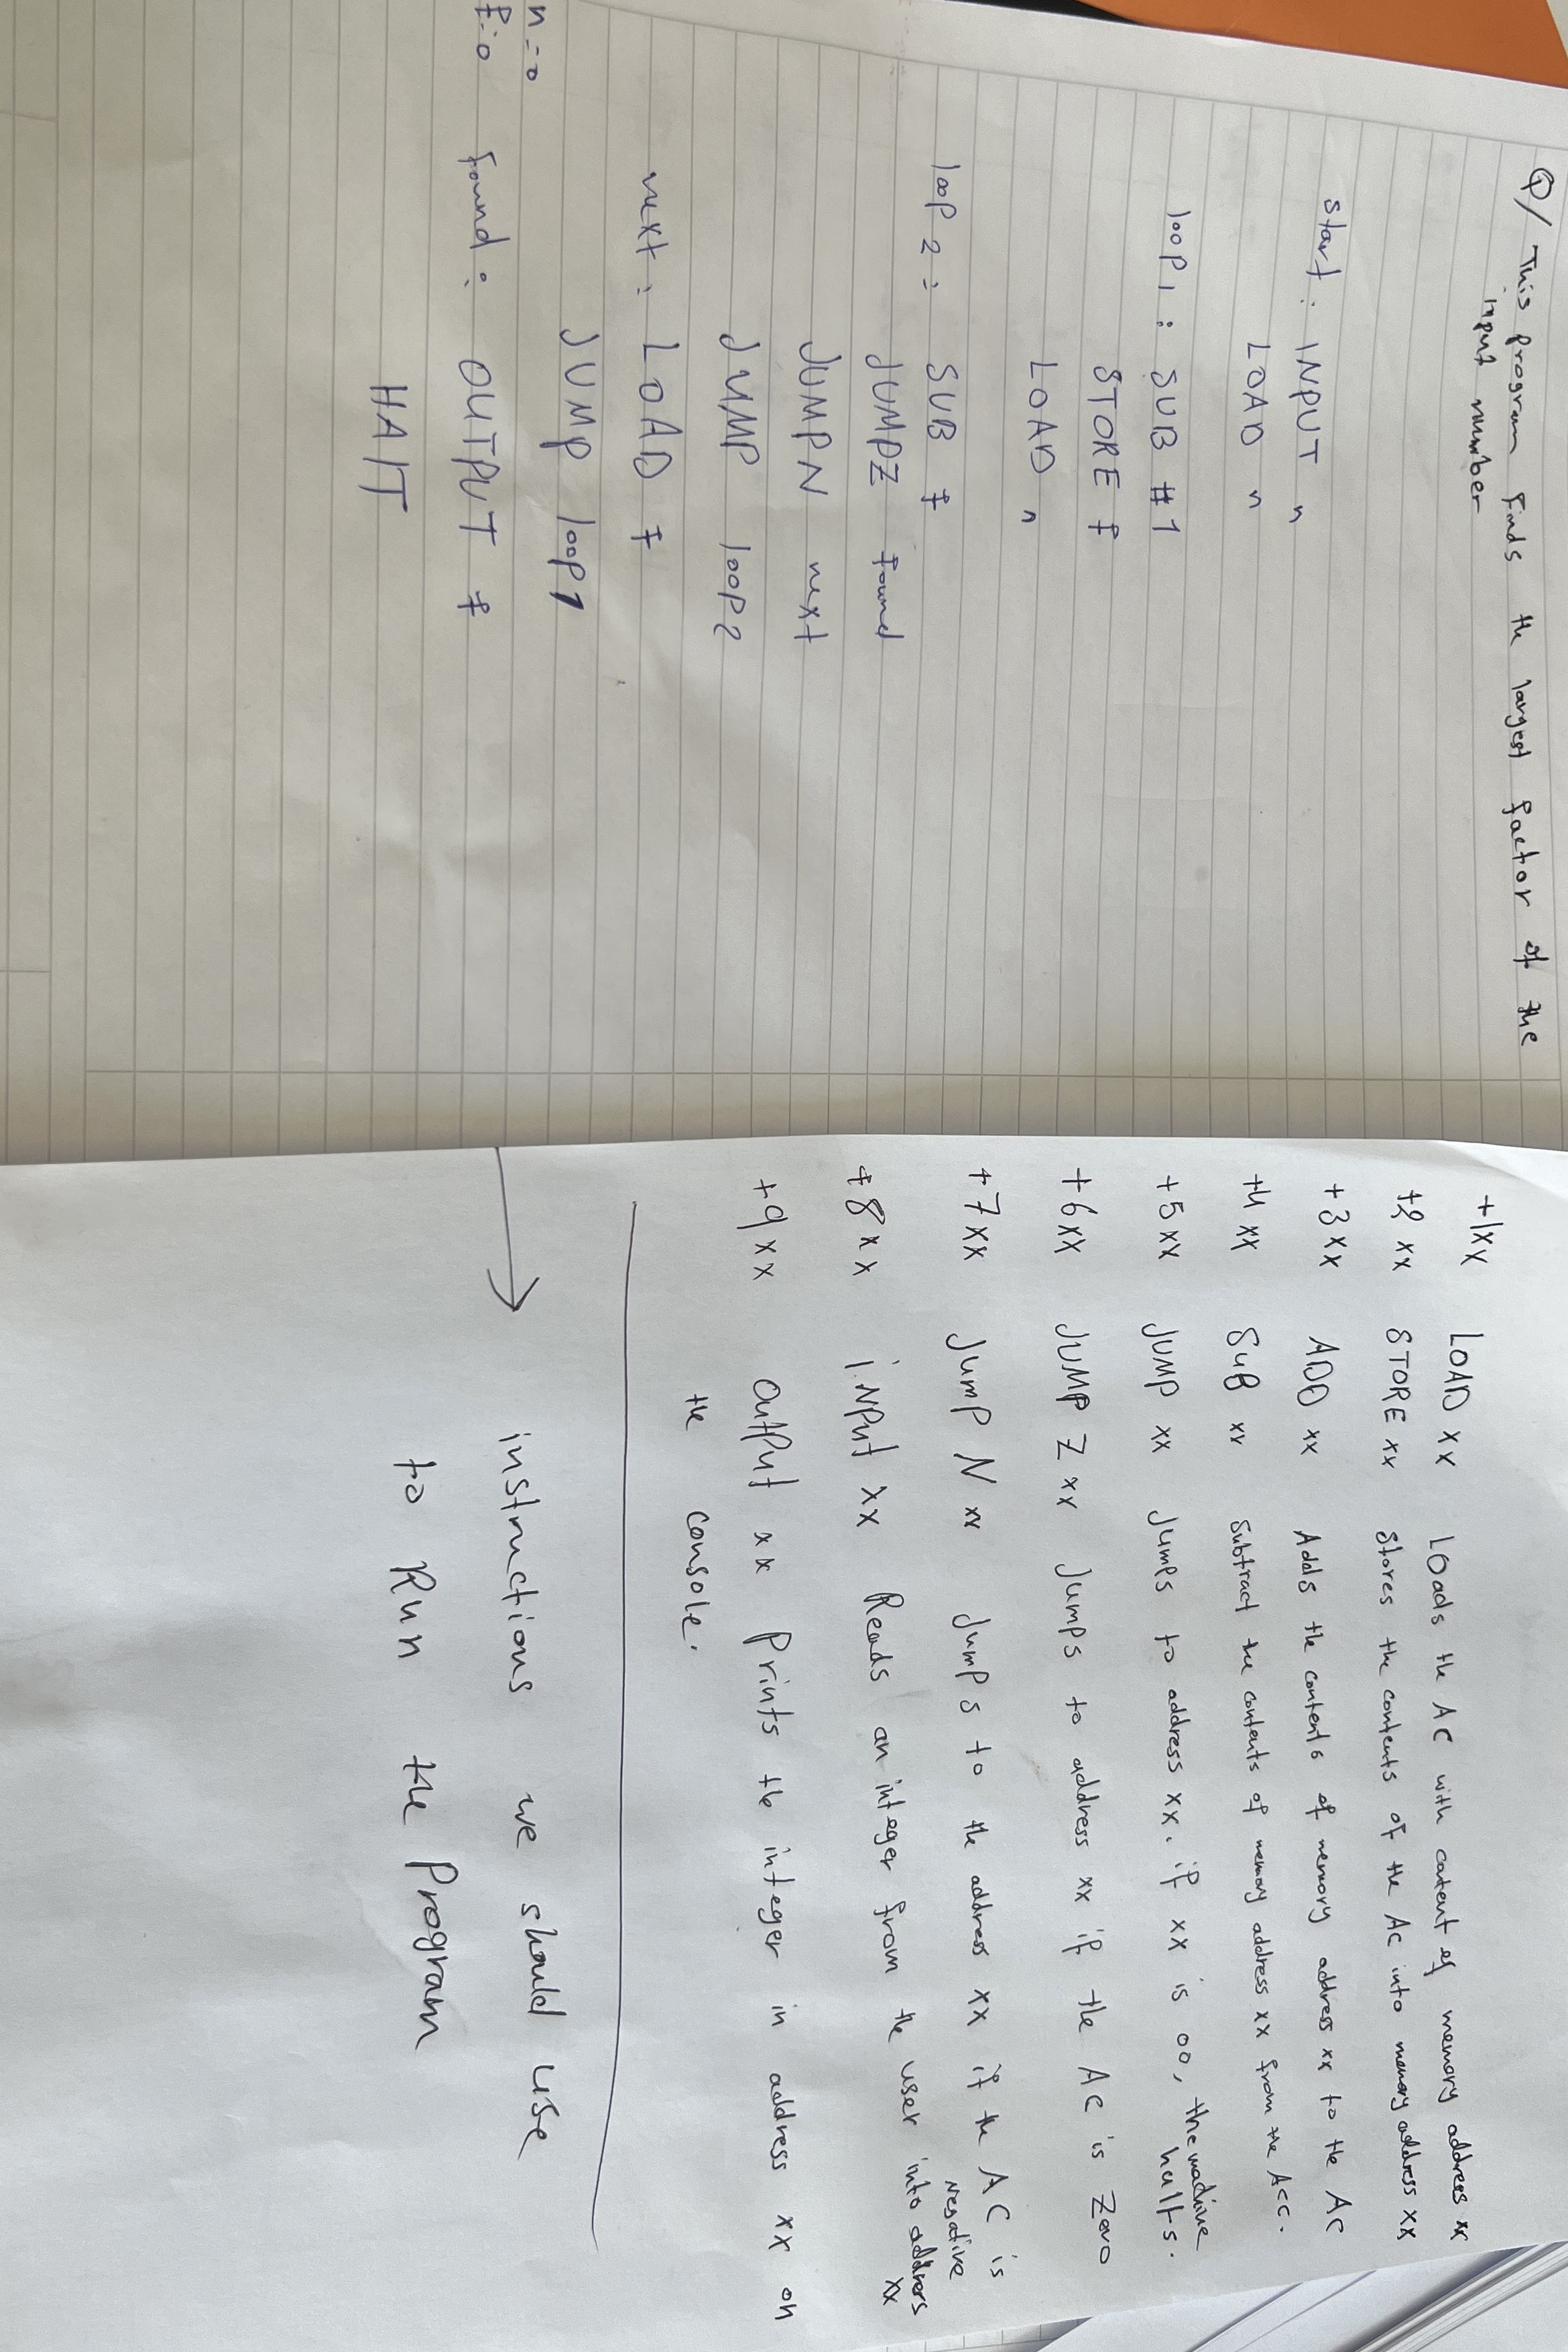 Q/ This program finds the largest factor of the
input number
start : INPUT n
LOAD n
loop 1 : SUB #1
STORE f
LOAD n
loop 2 : SUB f
JUMPZ found
JUMPN next
JUMP loop2
next : LOAD f
JUMP loop1
found : OUTPUT f
HAlT
n = 0
f = 0
+1xx LOAD xx Loads the AC with content of memory address xx
+2 xx STORE xx Stores the contents of the AC into memory address xx
+3xx ADD xx Adds the contents of memory address xx to the AC
+4 xx SUB xx Subtract the contents of memory address xx from the Acc.
+5xx JUMP xx Jumps to address xx. if xx is 00, the machine
halts.
+6xx JUMP Z xx Jumps to address xx if the AC is Zero
+7xx Jump N xx Jumps to the address xx if the AC is
negative
+8xx iNPut xx Reads an integer from the user into address
xx
+9xx OutPut xx Prints the integer in address xx on
the console.
instructions we should use
to Run the Program